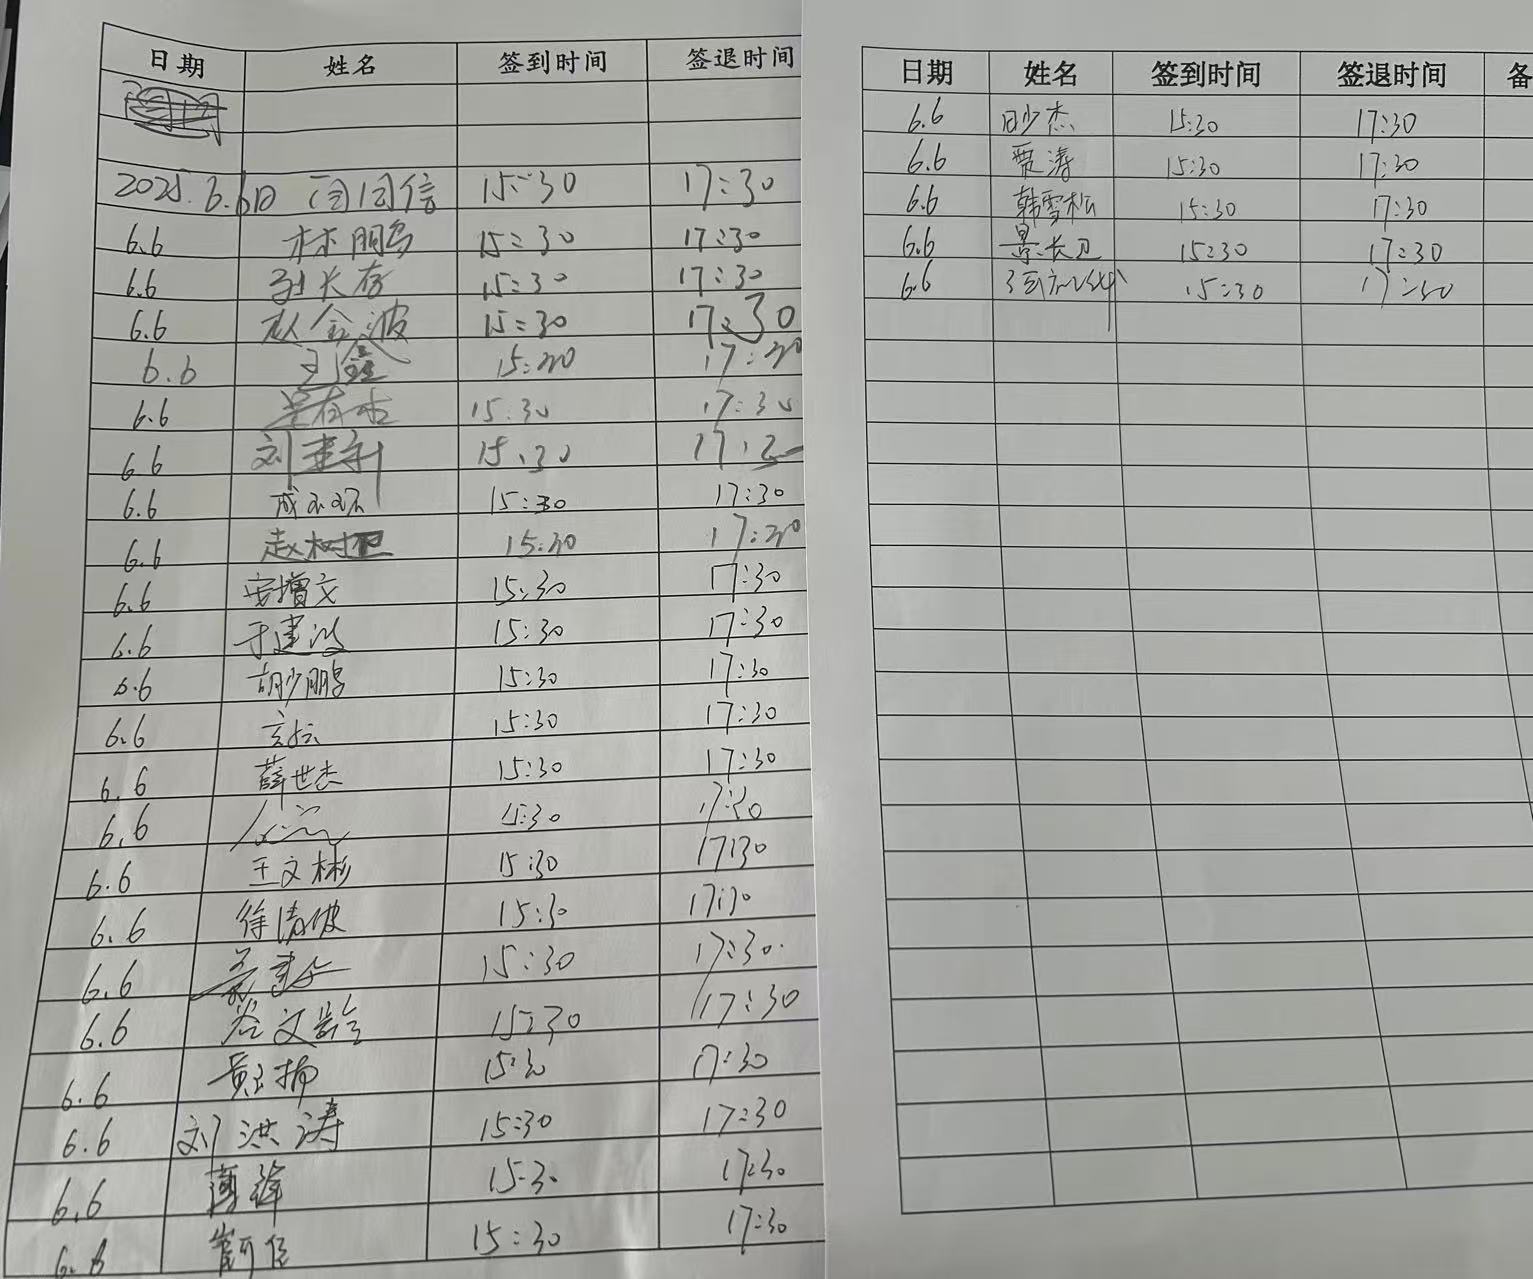 日期 姓名 签到时间 签退时间
2025.6.6日 闫闫信 15:30 17:30
6.6 林鹏 15:30 17:30
6.6 孙长存 15:30 17:30
6.6 赵金波 15:30 17:30
6.6 王鑫 15:30 17:30
6.6 15:30 17:30
6.6 刘 15:30 17:30
6.6 成 15:30 17:30
6.6 赵树卫 15:30 17:30
6.6 安增文 15:30 17:30
6.6 于建波 15:30 17:30
6.6 胡少鹏 15:30 17:30
6.6 15:30 17:30
6.6 薛世杰 15:30 17:30
6.6 15:30 17:30
6.6 王文彬 15:30 17:30
6.6 徐清波 15:30 17:30
6.6 15:30 17:30
6.6 谷文龄 15:30 17:30
6.6 15:30 17:30
6.6 刘洪涛 15:30 17:30
6.6 15:30 17:30
6.6 15:30 17:30
日期 姓名 签到时间 签退时间 备
6.6 田少杰 15:30 17:30
6.6 贾涛 15:30 17:30
6.6 韩雪松 15:30 17:30
6.6 景长卫 15:30 17:30
6.6 15:30 17:30